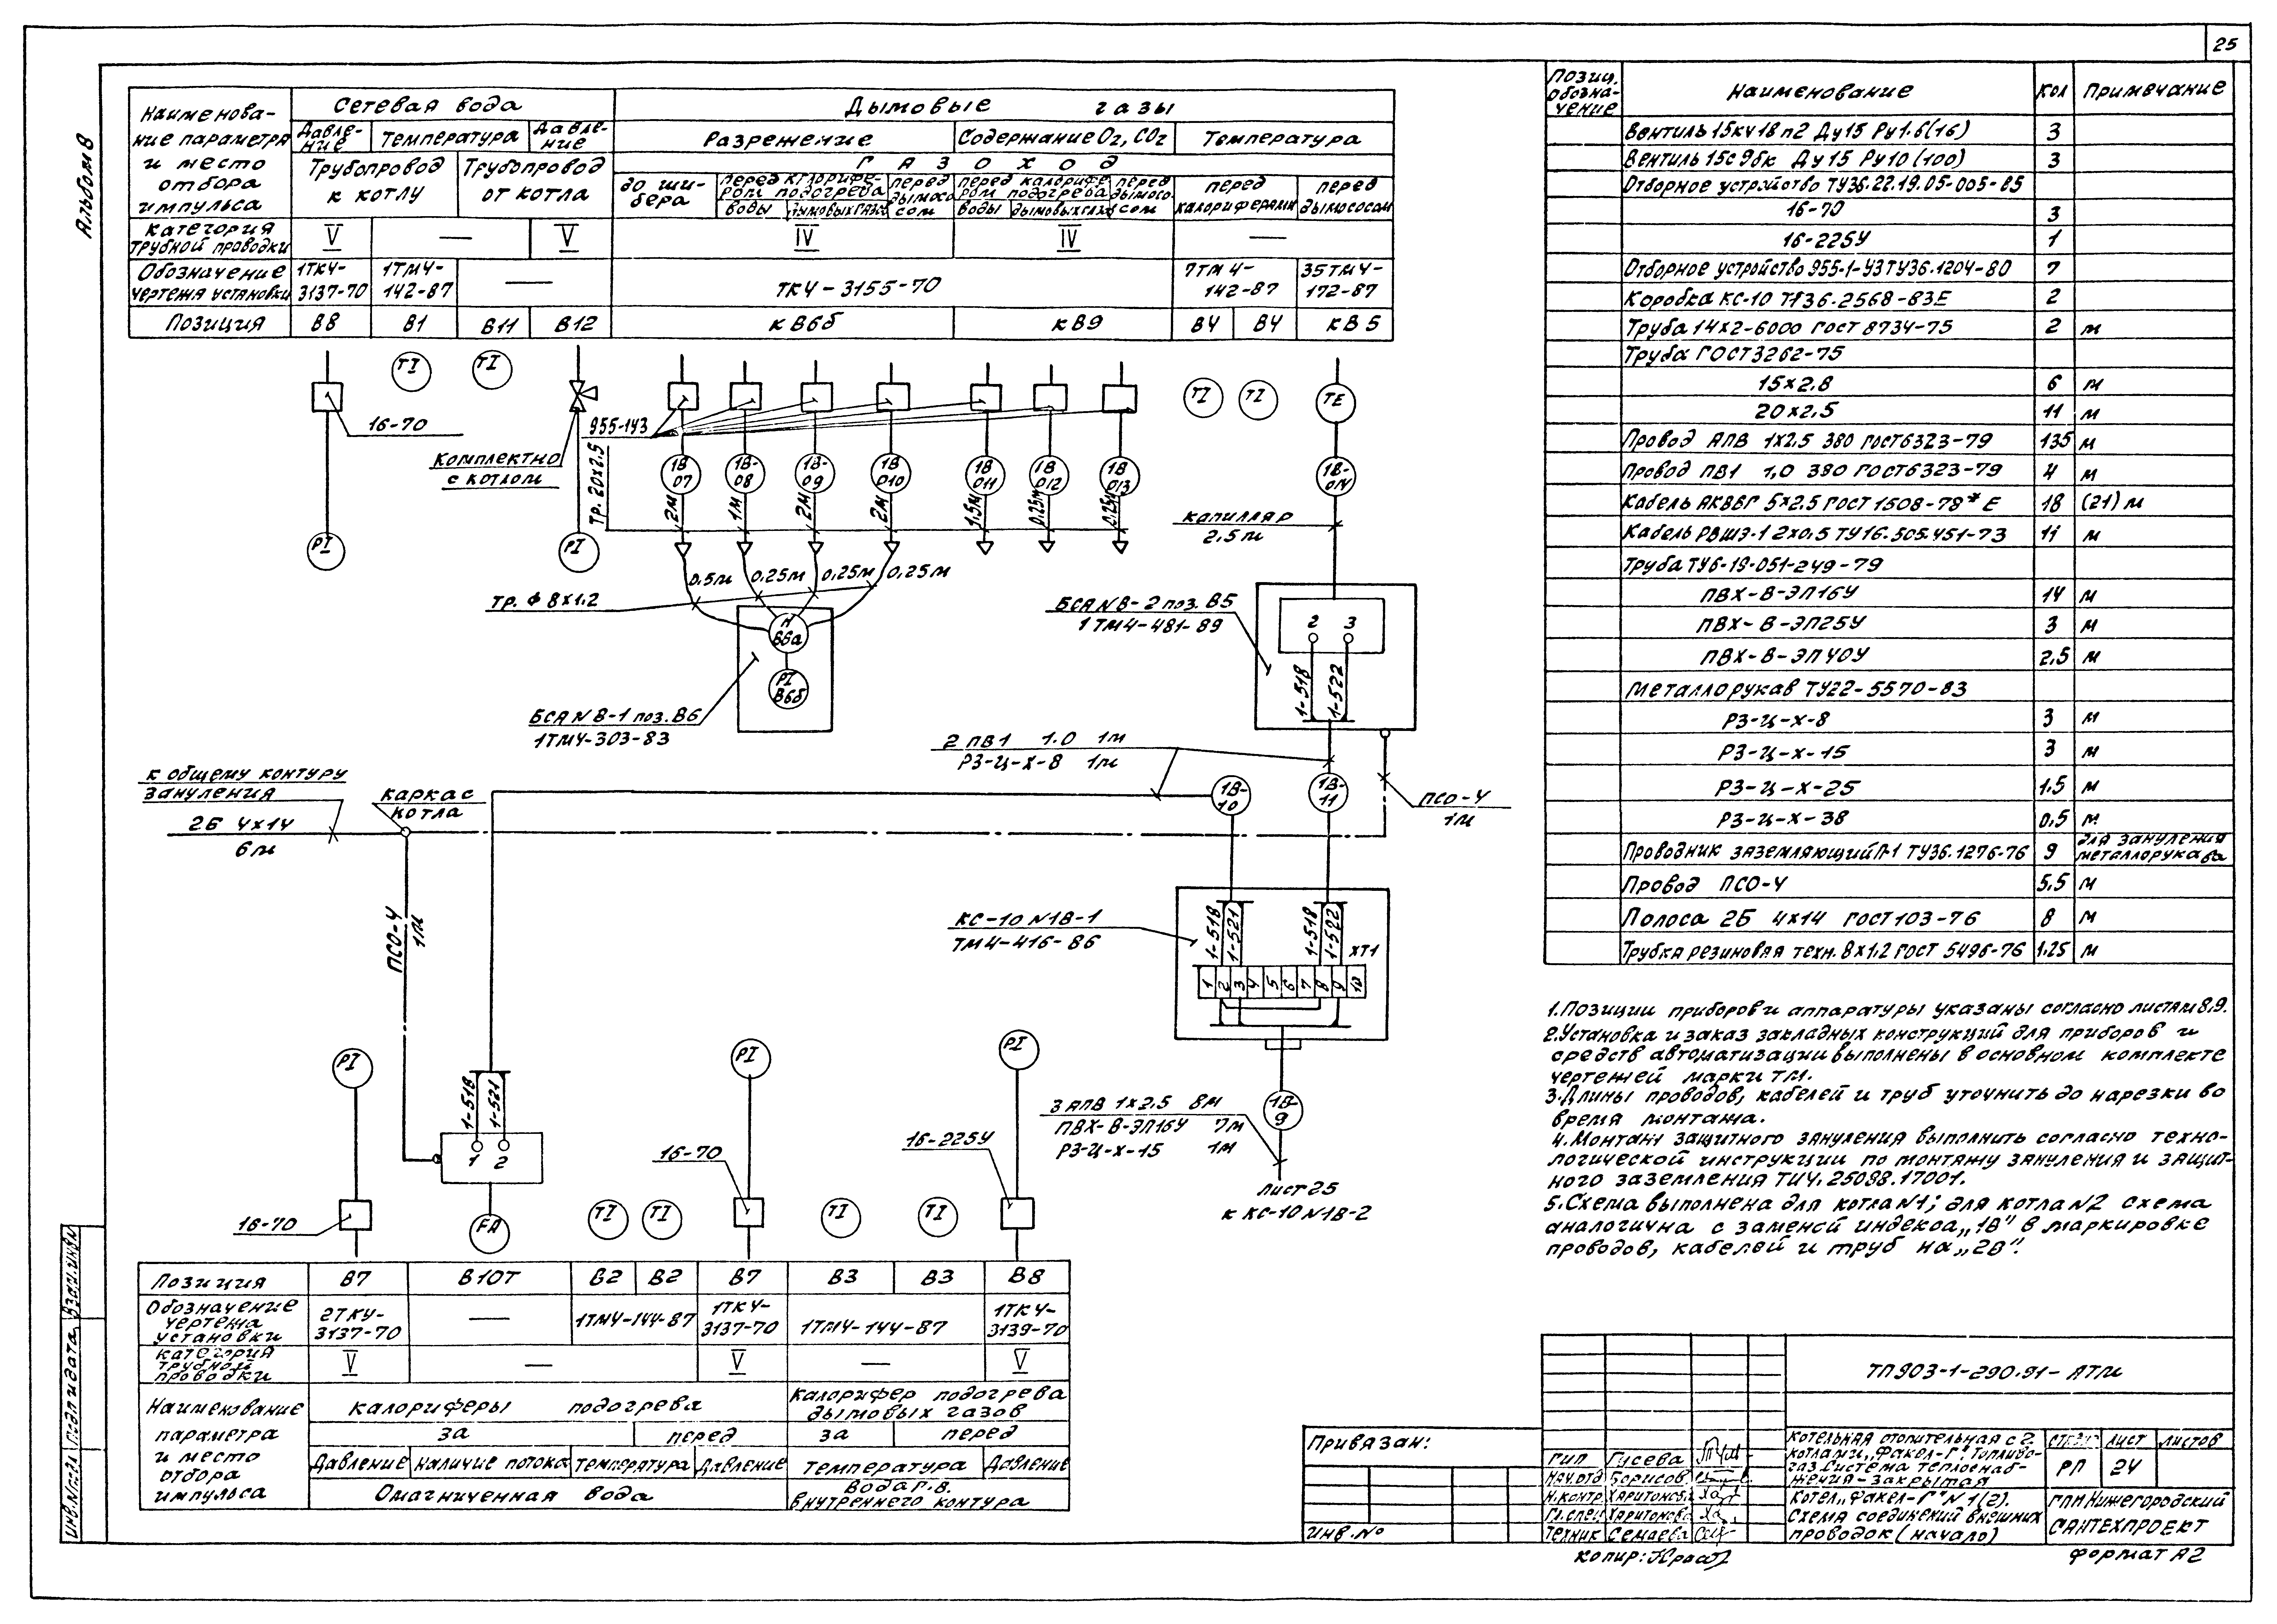 25
Альбом 8
Наименова-
ние параметра
и место
отбора
импульса
Сетевая вода
Дымовые газы
Давле-
ние
Температура
Давле-
ние
Разрежение
Содержание O2, CO2
Температура
Трубопровод
к котлу
Трубопровод
от котла
Газоход
до ши-
бера
перед калорифе-
ром подогрева
воды
дымовых газов
перед
дымосо-
сом
перед калорифе-
ром подогрева
воды
дымовых газов
перед
дымосо-
сом
перед
калориферами
перед
дымососом
Категория
трубной проводки
V
—
V
IV
IV
—
Обозначение
чертежа установки
1ТК4-
3137-70
1ТМ4-
142-87
—
ТК4-3155-70
7ТМ4-
142-87
35ТМ4-
172-87
Позиция
В8
В1
В11
В12
кВ6б
кВ9
В4
В4
кВ5
TI
TI
TI
TI
TE
16-70
955-1У3
Комплектно
с котлом
Тр. 20х2.5
1В
07
1В-
08
1В-
09
1В
010
1В
011
1В
012
1В
013
1В-
014
2м
1м
2м
2м
1.5м
0.25м
0.25м
PI
PI
капилляр
2.5м
0.5м
0.25м
0.25м
0.25м
тр. Ф 8х1.2
Н
В6а
PI
В6б
БСА N8-1 поз. В6
1ТМ4-303-83
БСА N8-2 поз. В5
1ТМ4-481-89
2 3
1-518
1-522
2 ПВ1 1.0 1м
РЗ-Ц-Х-8 1м
1В-
10
1В-
11
ПСО-4
1м
к общему контуру
зануления
2Б 4х14
6м
каркас
котла
ПСО-4
1м
КС-10 N1В-1
ТМ4-416-86
1-518
1-521
1-518
1-522
ХТ1
1 2 3 4 5 6 7 8 9 10
3 АПВ 1х2.5 8м
ПВХ-В-ЭП16У 7м
РЗ-Ц-Х-15 1м
1В-
9
Лист 25
к КС-10 N1В-2
PI
PI
PI
1-518
1-521
1 2
FA
16-70
16-70
16-225У
TI
TI
TI
TI
Позиция
В7
В10Т
В2
В2
В7
В3
В3
В8
Обозначение
чертежа
установки
2ТК4-
3137-70
—
1ТМ4-144-87
1ТК4-
3137-70
1ТМ4-144-87
1ТК4-
3139-70
Категория
трубной
проводки
V
—
V
—
V
Наименование
параметра
и место
отбора
импульса
калориферы подогрева
Калорифер подогрева
дымовых газов
за
перед
за
перед
Давление
Наличие потока
Температура
Давление
Температура
Давление
Омагниченная вода
Вода г.в.
внутреннего контура
Позиц.
обозна-
чение
Наименование
Кол
Примечание
Вентиль 15кч18п2 Ду15 Ру1.6(16) 3
Вентиль 15с9бк Ду15 Ру10(100) 3
Отборное устройство ТУ36.22.19.05-005-85
16-70 3
16-225У 1
Отборное устройство 955-1-У3 ТУ36.1204-80 7
Коробка КС-10 ТУ36.2568-83Е 2
Труба 14х2-6000 ГОСТ 8734-75 2 м
Труба ГОСТ3262-75
15х2.8 6 м
20х2.5 11 м
Провод АПВ 1х2.5 380 ГОСТ6323-79 135 м
Провод ПВ1 1,0 380 ГОСТ6323-79 4 м
Кабель АКВВГ 5х2.5 ГОСТ1508-78*Е 18 (21) м
Кабель РВШЭ-1 2х0,5 ТУ16.505.451-73 11 м
Труба ТУ6-19-051-249-79
ПВХ-В-ЭП16У 14 м
ПВХ-В-ЭП25У 3 м
ПВХ-В-ЭП40У 2,5 м
Металлорукав ТУ22-5570-83
РЗ-Ц-Х-8 3 м
РЗ-Ц-Х-15 3 м
РЗ-Ц-Х-25 1.5 м
РЗ-Ц-Х-38 0.5 м
Проводник заземляющий П-1 ТУ36.1276-76 9 для зануления
металлорукава
Провод ПСО-4 5,5 м
Полоса 2Б 4х14 ГОСТ103-76 8 м
Трубка резиновая техн. 8х1.2 ГОСТ 5496-76 1.25 м
1.Позиции приборов и аппаратуры указаны согласно листам 8,9.
2.Установка и заказ закладных конструкций для приборов и
средств автоматизации выполнены в основном комплекте
чертежей марки ТМ.
3.Длины проводов, кабелей и труб уточнить до нарезки во
время монтажа.
4.Монтаж защитного зануления выполнить согласно техно-
логической инструкции по монтажу зануления и защит-
ного заземления ТИ4.25088.17001.
5.Схема выполнена для котла N1; для котла N2 схема
аналогична с заменой индекса „1В" в маркировке
проводов, кабелей и труб на „2В".
ТП903-1-290.91-АТМ
Привязан:
Инв.№
ГИП Гусева
Нач.отд Борисов
Н.контр Харитонова
Гл.спец Харитонова
Техник Семаева
Котельная отопительная с 2
котлами „Факел-Г". Топливо-
газ. Система теплоснаб-
жения-закрытая
Стадия
Лист
Листов
РП
24
Котел „Факел-Г" N1(2).
Схема соединений внешних
проводок (начало)
ГПИ Нижегородский
САНТЕХПРОЕКТ
Формат А2
Инв.№ подл
Подп и дата
Взам.инв.№